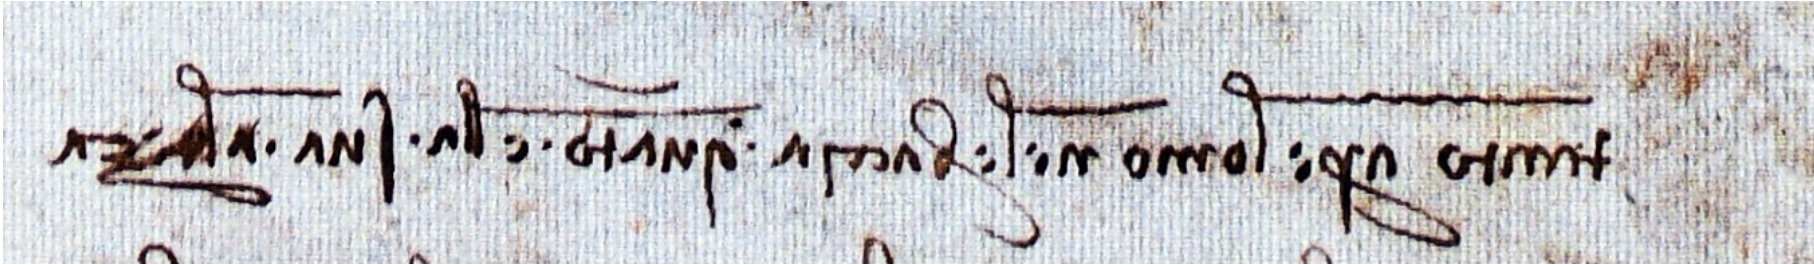 tanto apre lomo nele braccia · quanto · e lla · sua · alteza